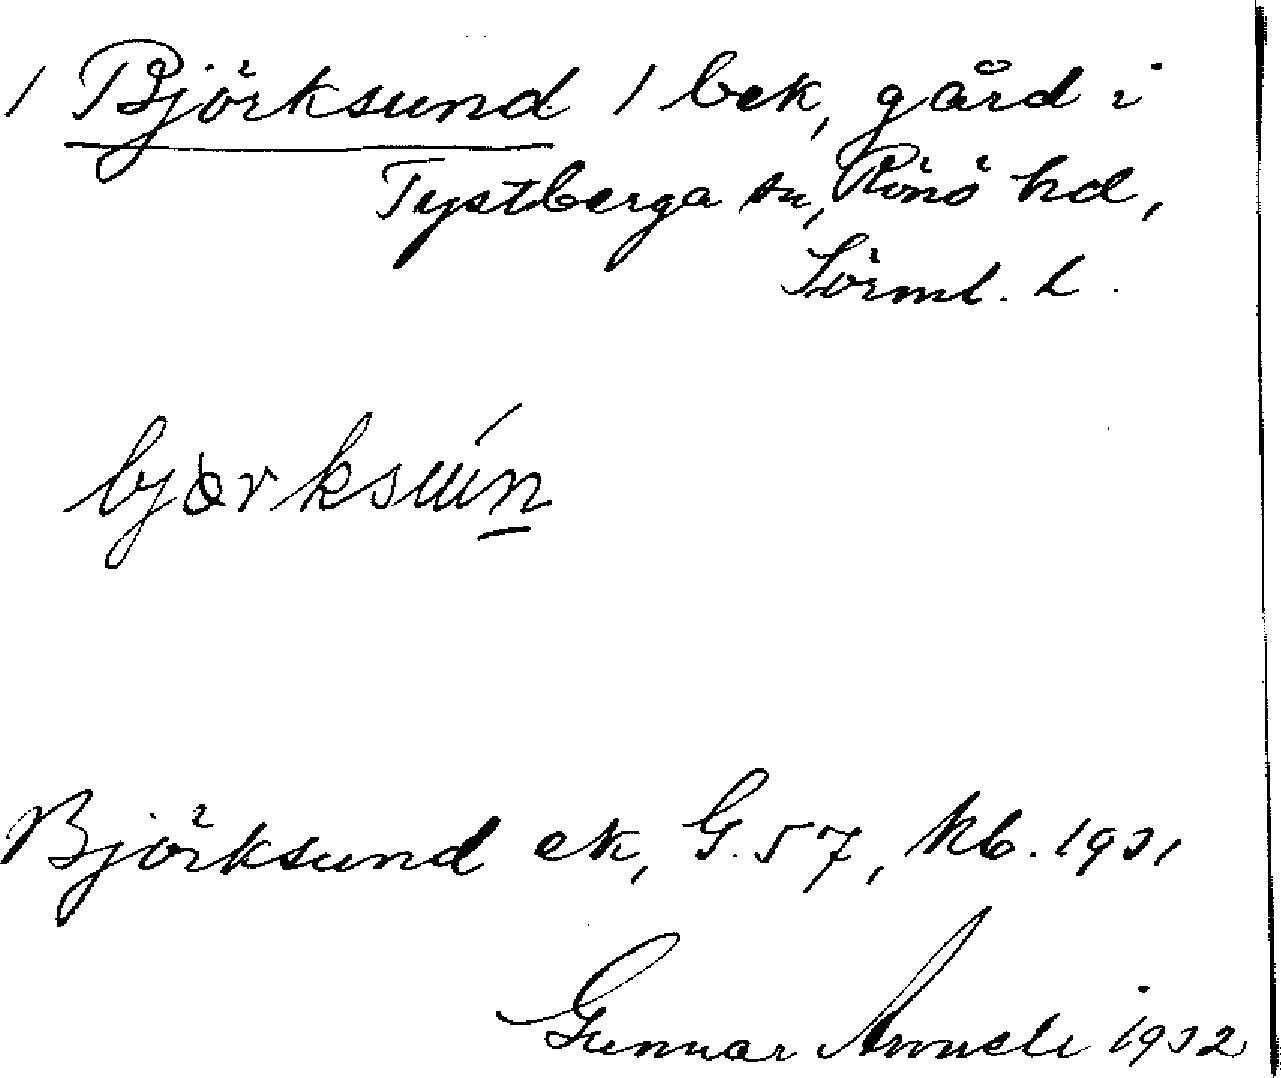 / Björksund / bek, gård i
Tystberga sn, Rönö hd,
Sörml. l.
bjørksɯ́n
Björksund ek, G. 57, kb. 1931
Gunnar 1932